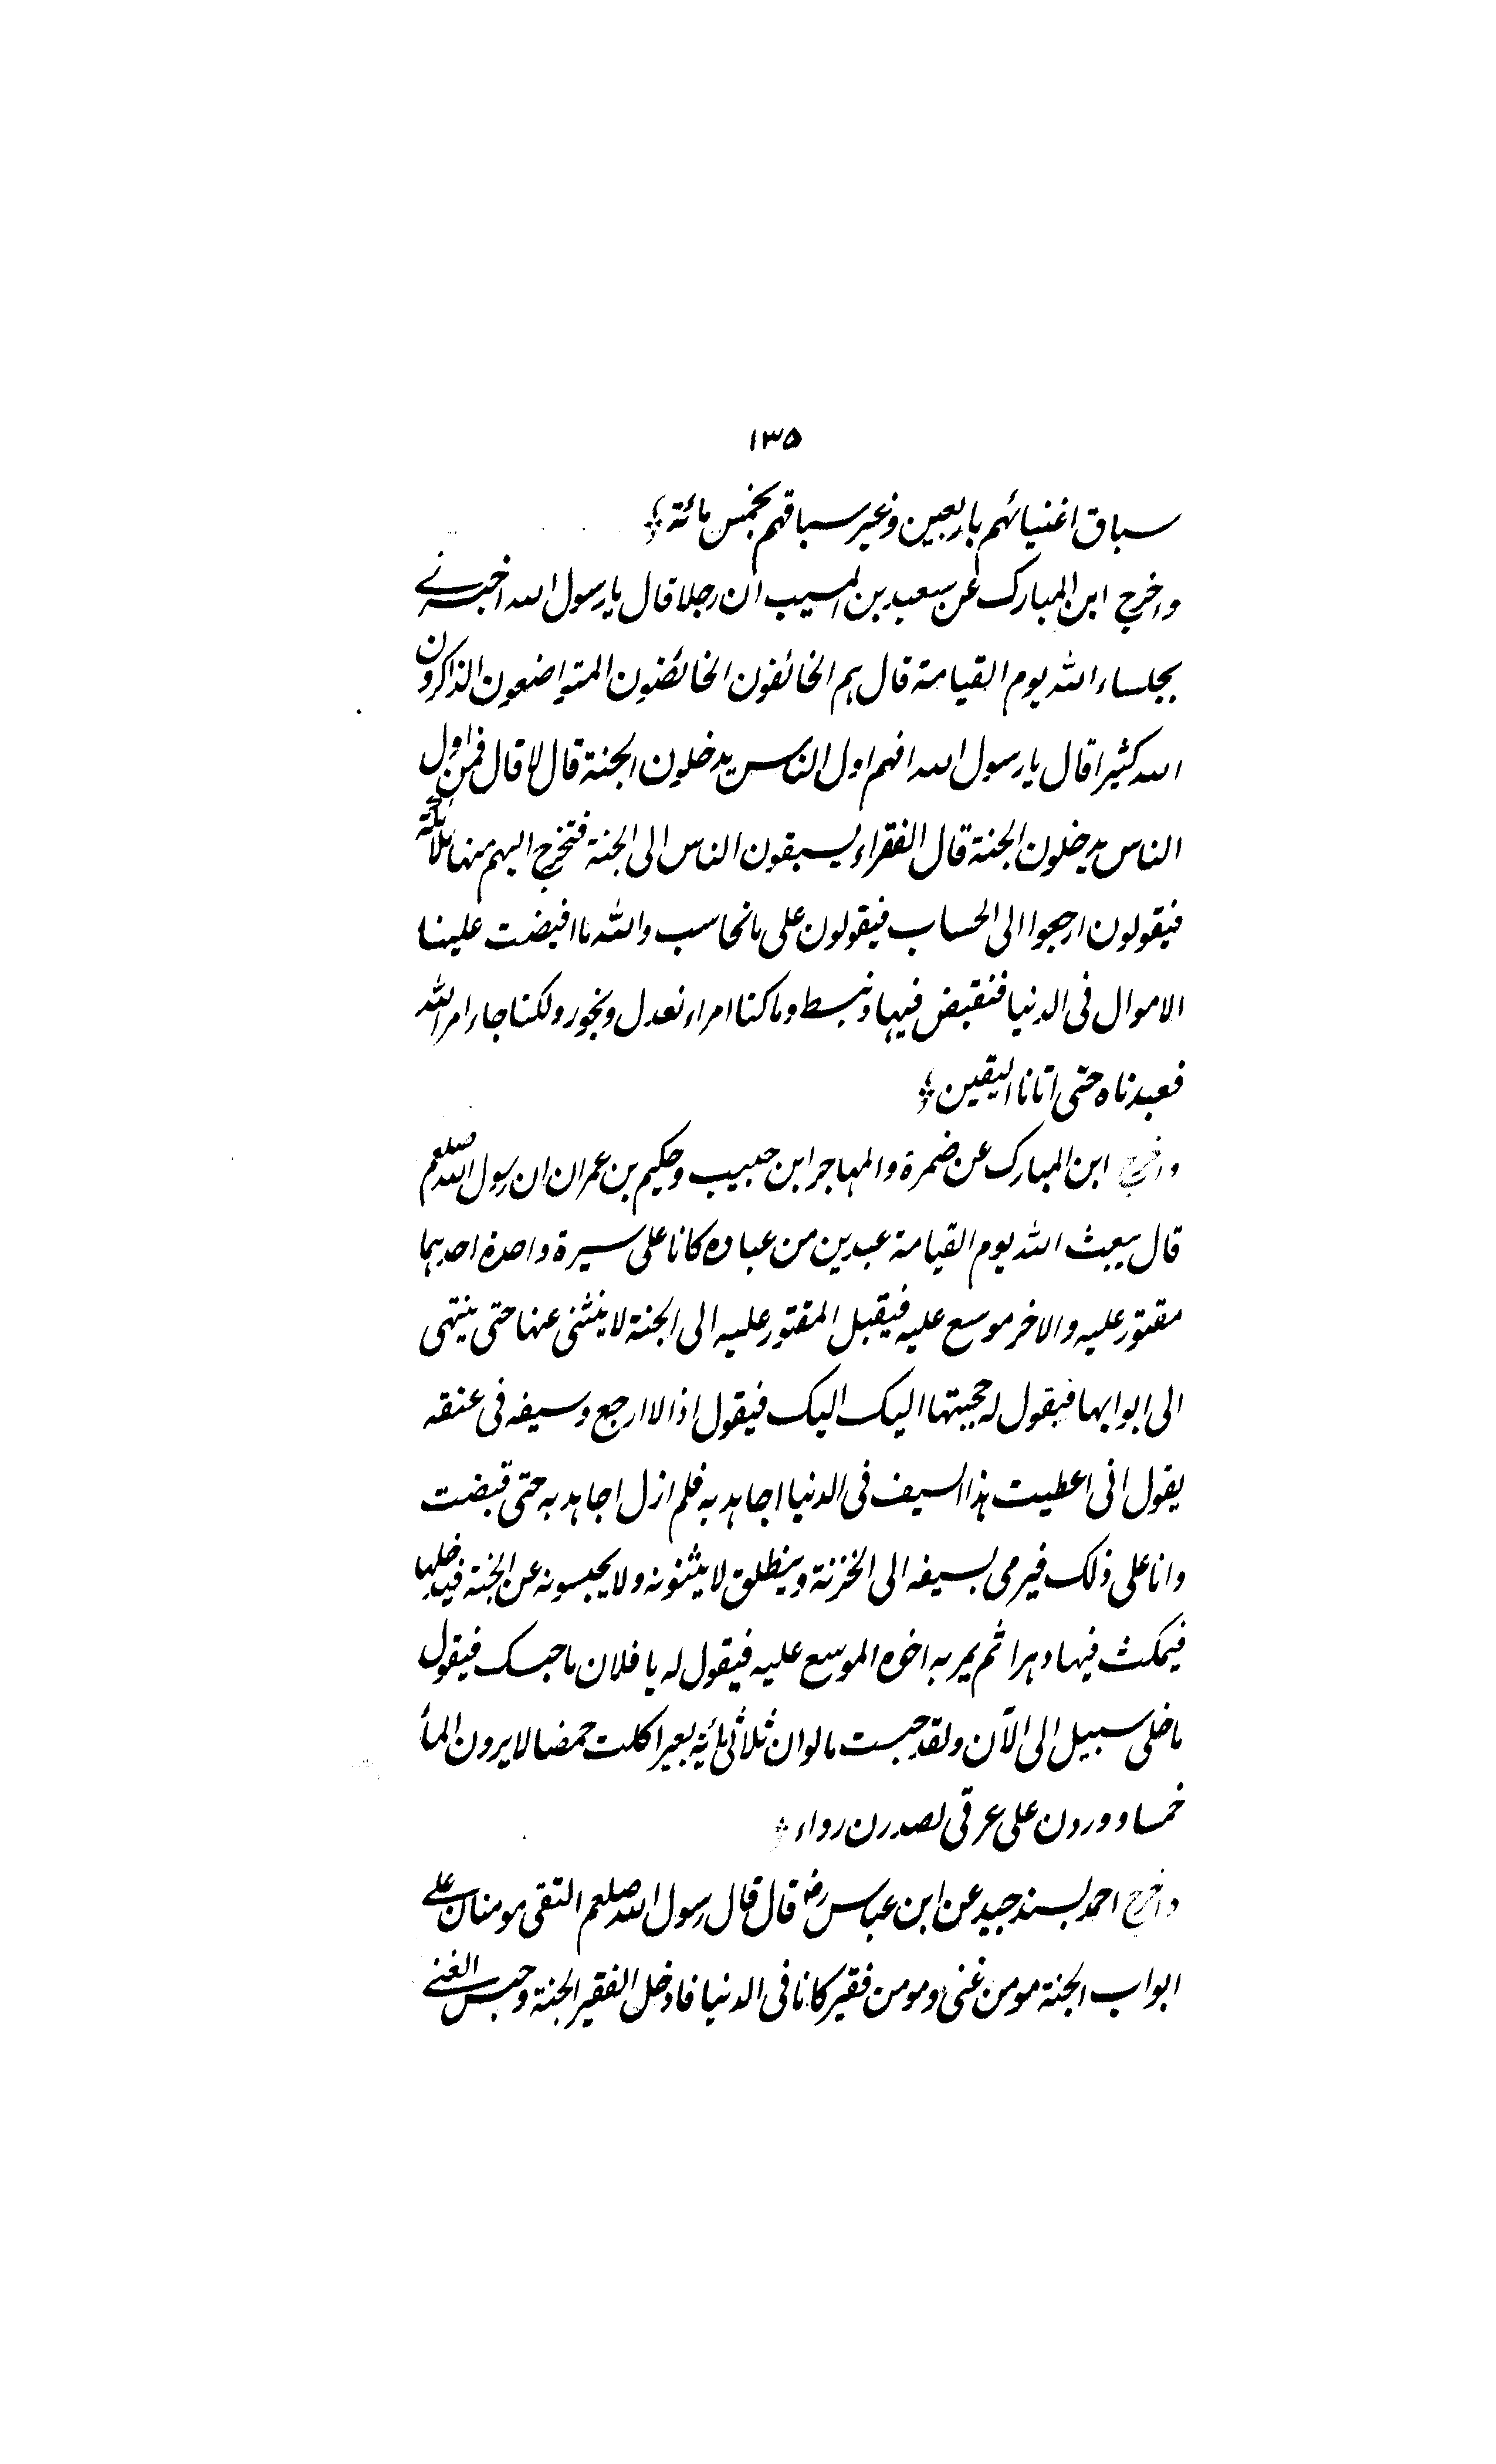 ١٣٥
سباق اغنيائهم باربعين وغير سباقهم بخمس مائة
واخرج ابن المبارك عن سعيد بن المسيب ان رجلا قال يا رسول الله اخبرنے
بجلساء الله يوم القيامة قال هم الخائفون الخائضون المتواضعون الذاكرون
الله كثيرا قال يا رسول الله افهم اول الناس يدخلون الجنة قال لا قال فمن اول
الناس يدخلون الجنة قال الفقراء يسبقون الناس الى الجنة فتخرج اليهم منها ملائكة
فيقولون ارجعوا الى الحساب فيقولون على ما نحاسب والله ما افيضت علينا
الاموال فى الدنيا فنقبض فيها ونبسط وما كنا امراء نعدل ونجور ولكنا جاء امر الله
فعبدناه حتى اتانا اليقين
واخرج ابن المبارك عن ضمرة والمهاجر ابن حبيب وحكيم بن عمران ان رسول الله صلعم
قال يبعث الله يوم القيامة عبدين من عباده كانا على سيرة واحدة احدهما
مقتور عليه والاخر موسع عليه فيقبل المقتور عليه الى الجنة لا ينثنى عنها حتى ينتهى
الى ابوابها فيقول له حجبتها اليك اليك فيقول اذا لا ارجع وسيفه فى عنقه
يقول انى اعطيت هذا السيف فى الدنيا اجاهد به فلم ازل اجاهد به حتى قبضت
وانا على ذلك فيرمى بسيفه الى الخزنة وينطلق لا يثنونه ولا يحبسونه عن الجنة فيدخلها
فيمكث فيها دهرا ثم يمر به اخوه الموسع عليه فيقول له يا فلان ما حبسك فيقول
ما خلى سبيل الى الآن ولقد حبست ما لو ان ثلاثمائة بعير اكلت حمضا لا يرون الماٴ
خمسا ووردن على عرقى لصدرن رواء
واخرج احمد بسند جيد عن ابن عباس رض قال قال رسول الله صلعم التقى مومنان علے
ابواب الجنة مومن غنى ومومن فقير كانا فى الدنيا فادخل الفقير الجنة وحبس الغنے